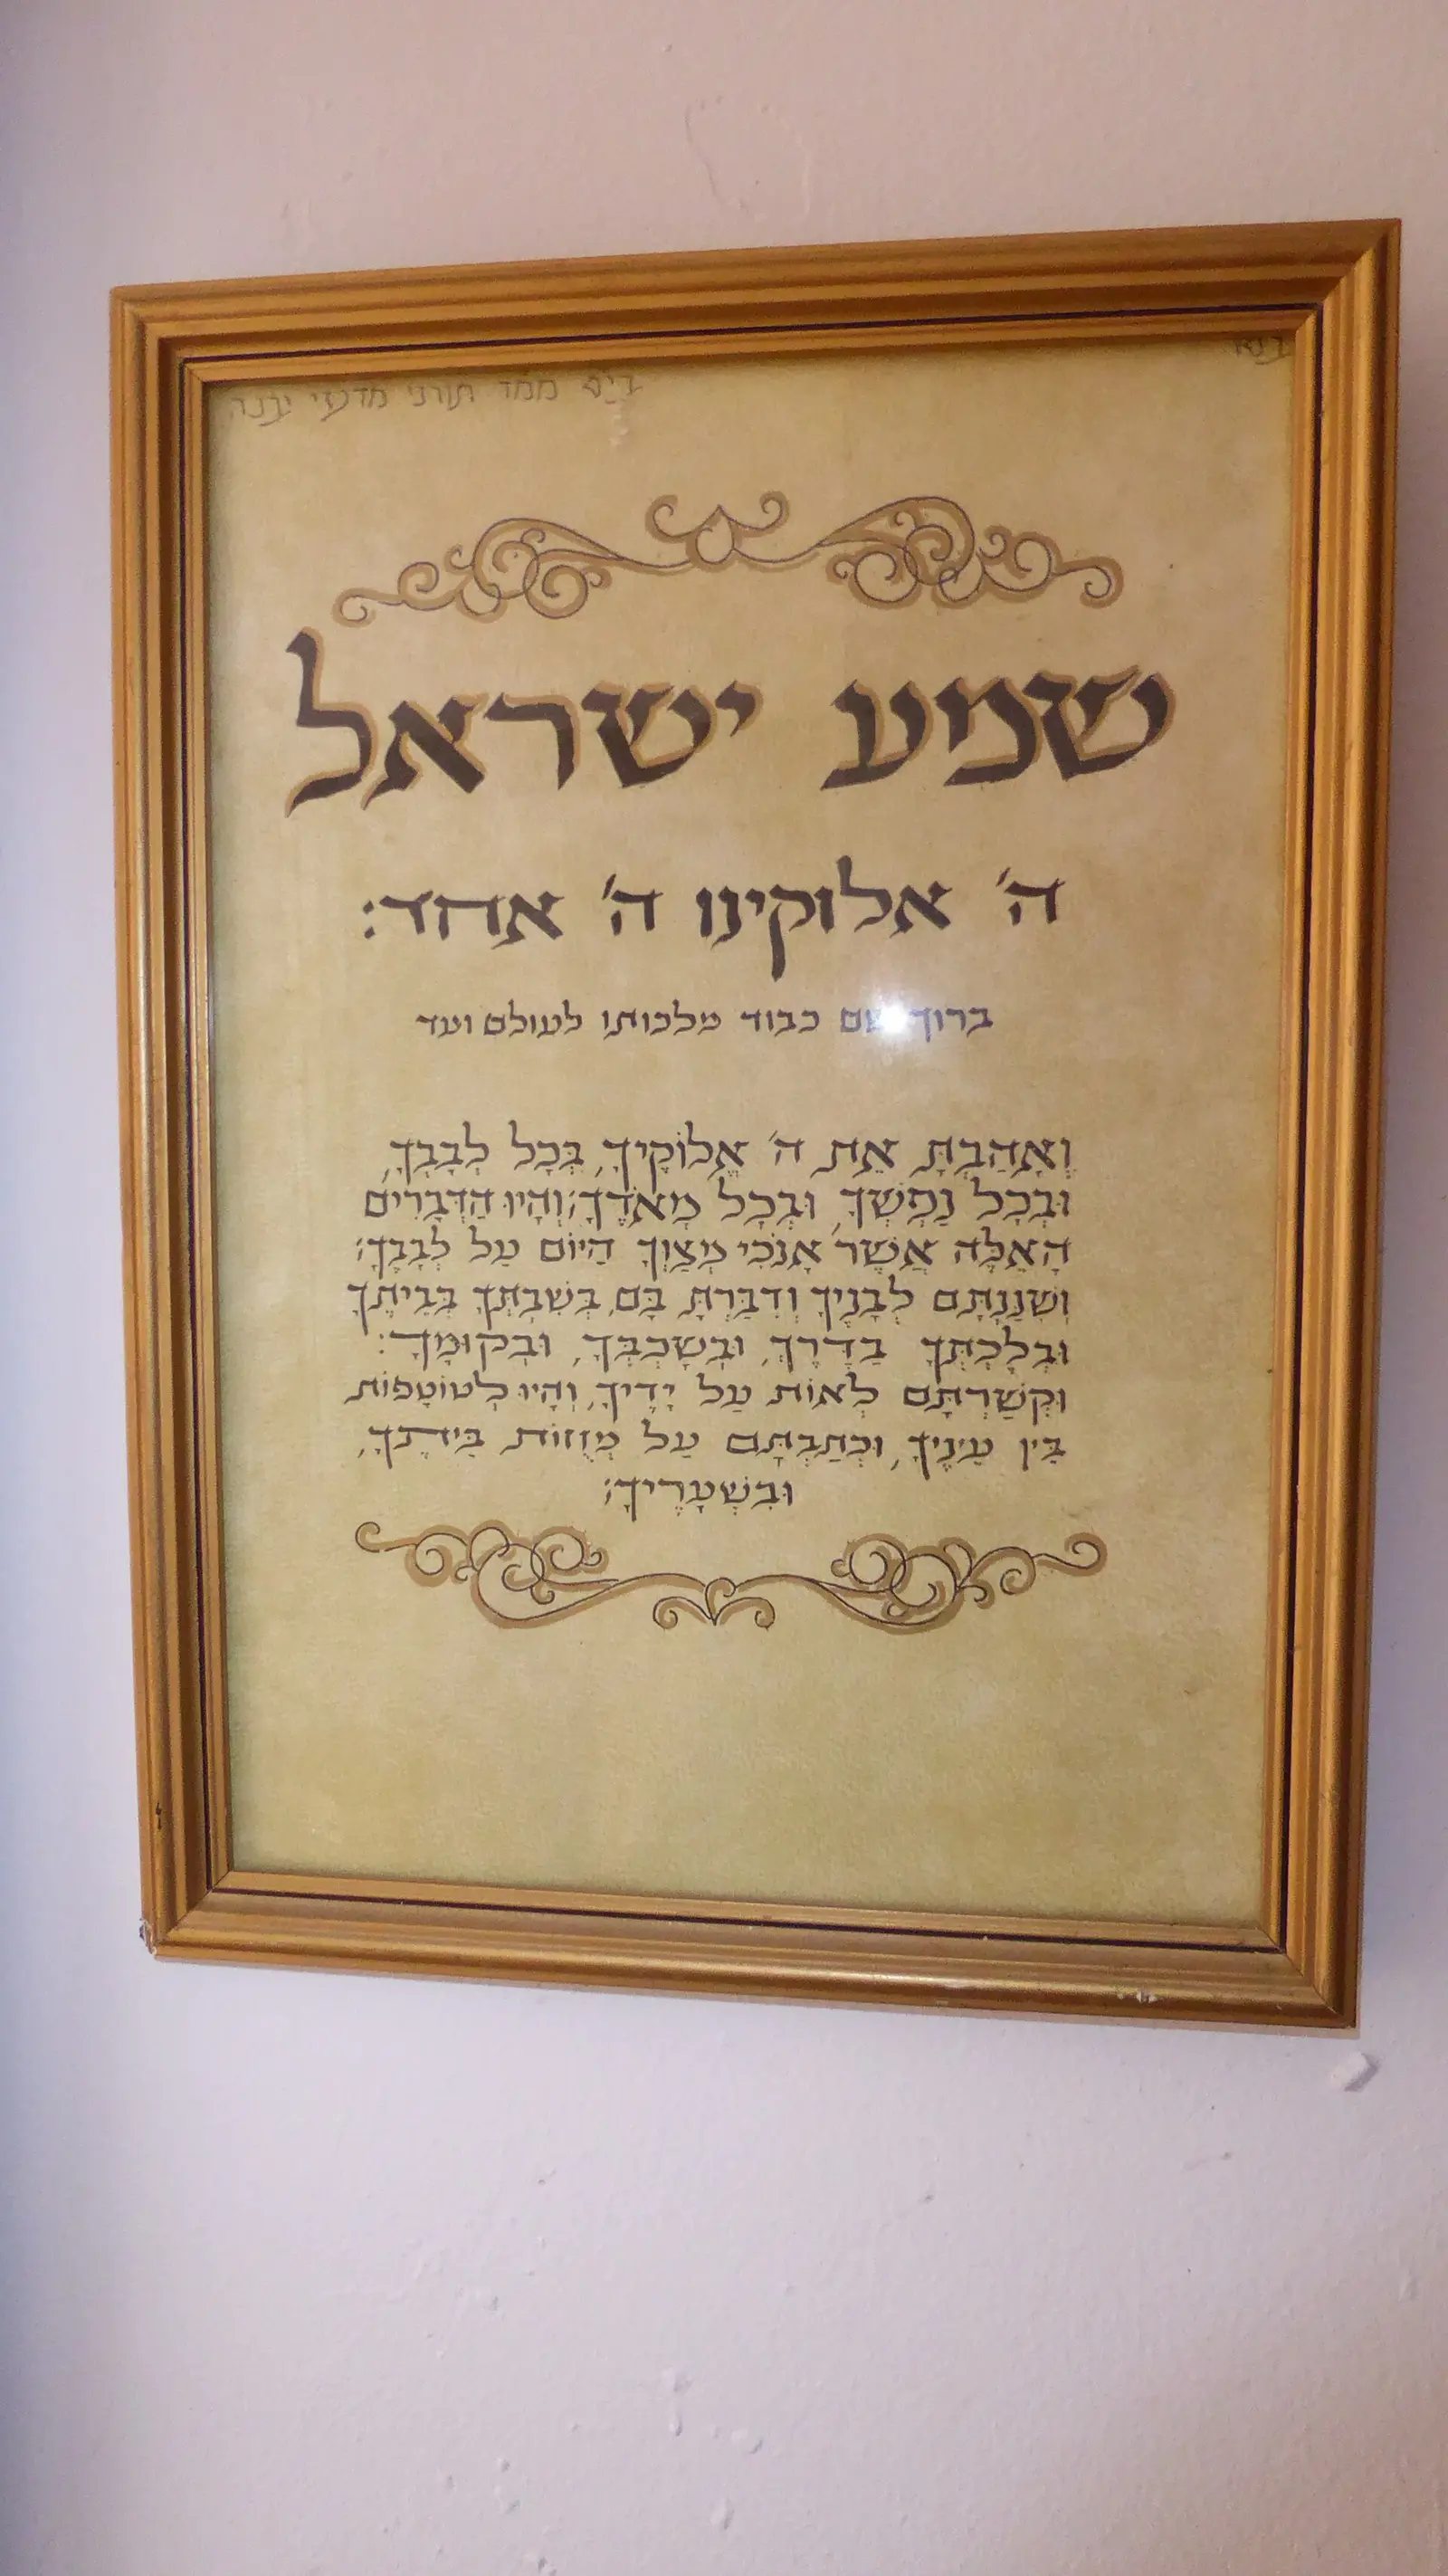 בנא
בי"ס ממד תורני מדעי יבנה
שמע ישראל
ה' אלוקינו ה' אחד:
ברוך שם כבוד מלכותו לעולם ועד
וְאָהַבְתָּ אֵת ה' אֱלוֹקֶיךָ, בְּכָל לְבָבְךָ,
וּבְכָל נַפְשְׁךָ, וּבְכָל מְאֹדֶךָ: וְהָיוּ הַדְּבָרִים
הָאֵלֶּה אֲשֶׁר אָנֹכִי מְצַוְּךָ הַיּוֹם עַל לְבָבֶךָ:
וְשִׁנַּנְתָּם לְבָנֶיךָ וְדִבַּרְתָּ בָּם, בְּשִׁבְתְּךָ בְּבֵיתֶךָ
וּבְלֶכְתְּךָ בַדֶּרֶךְ, וּבְשָׁכְבְּךָ, וּבְקוּמֶךָ:
וּקְשַׁרְתָּם לְאוֹת עַל יָדֶיךָ, וְהָיוּ לְטוֹטָפוֹת
בֵּין עֵינֶיךָ, וּכְתַבְתָּם עַל מְזֻזוֹת בֵּיתֶךָ,
וּבִשְׁעָרֶיךָ: